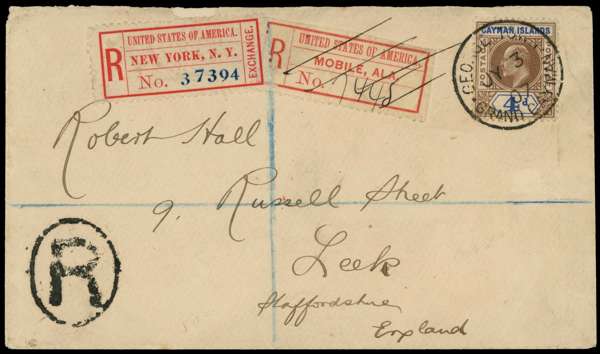 UNITED STATES OF AMERICA.
R NEW YORK, N. Y. EXCHANGE.
No. 37394
UNITED STATES OF AMERICA.
R MOBILE, ALA.
No.
CAYMAN ISLANDS
POSTAGE
4d
GEORGETOWN
JY 3
07
GRAND CAYMAN
Robert Hall
9. Russell Street
Leek
Staffordshire
England
R